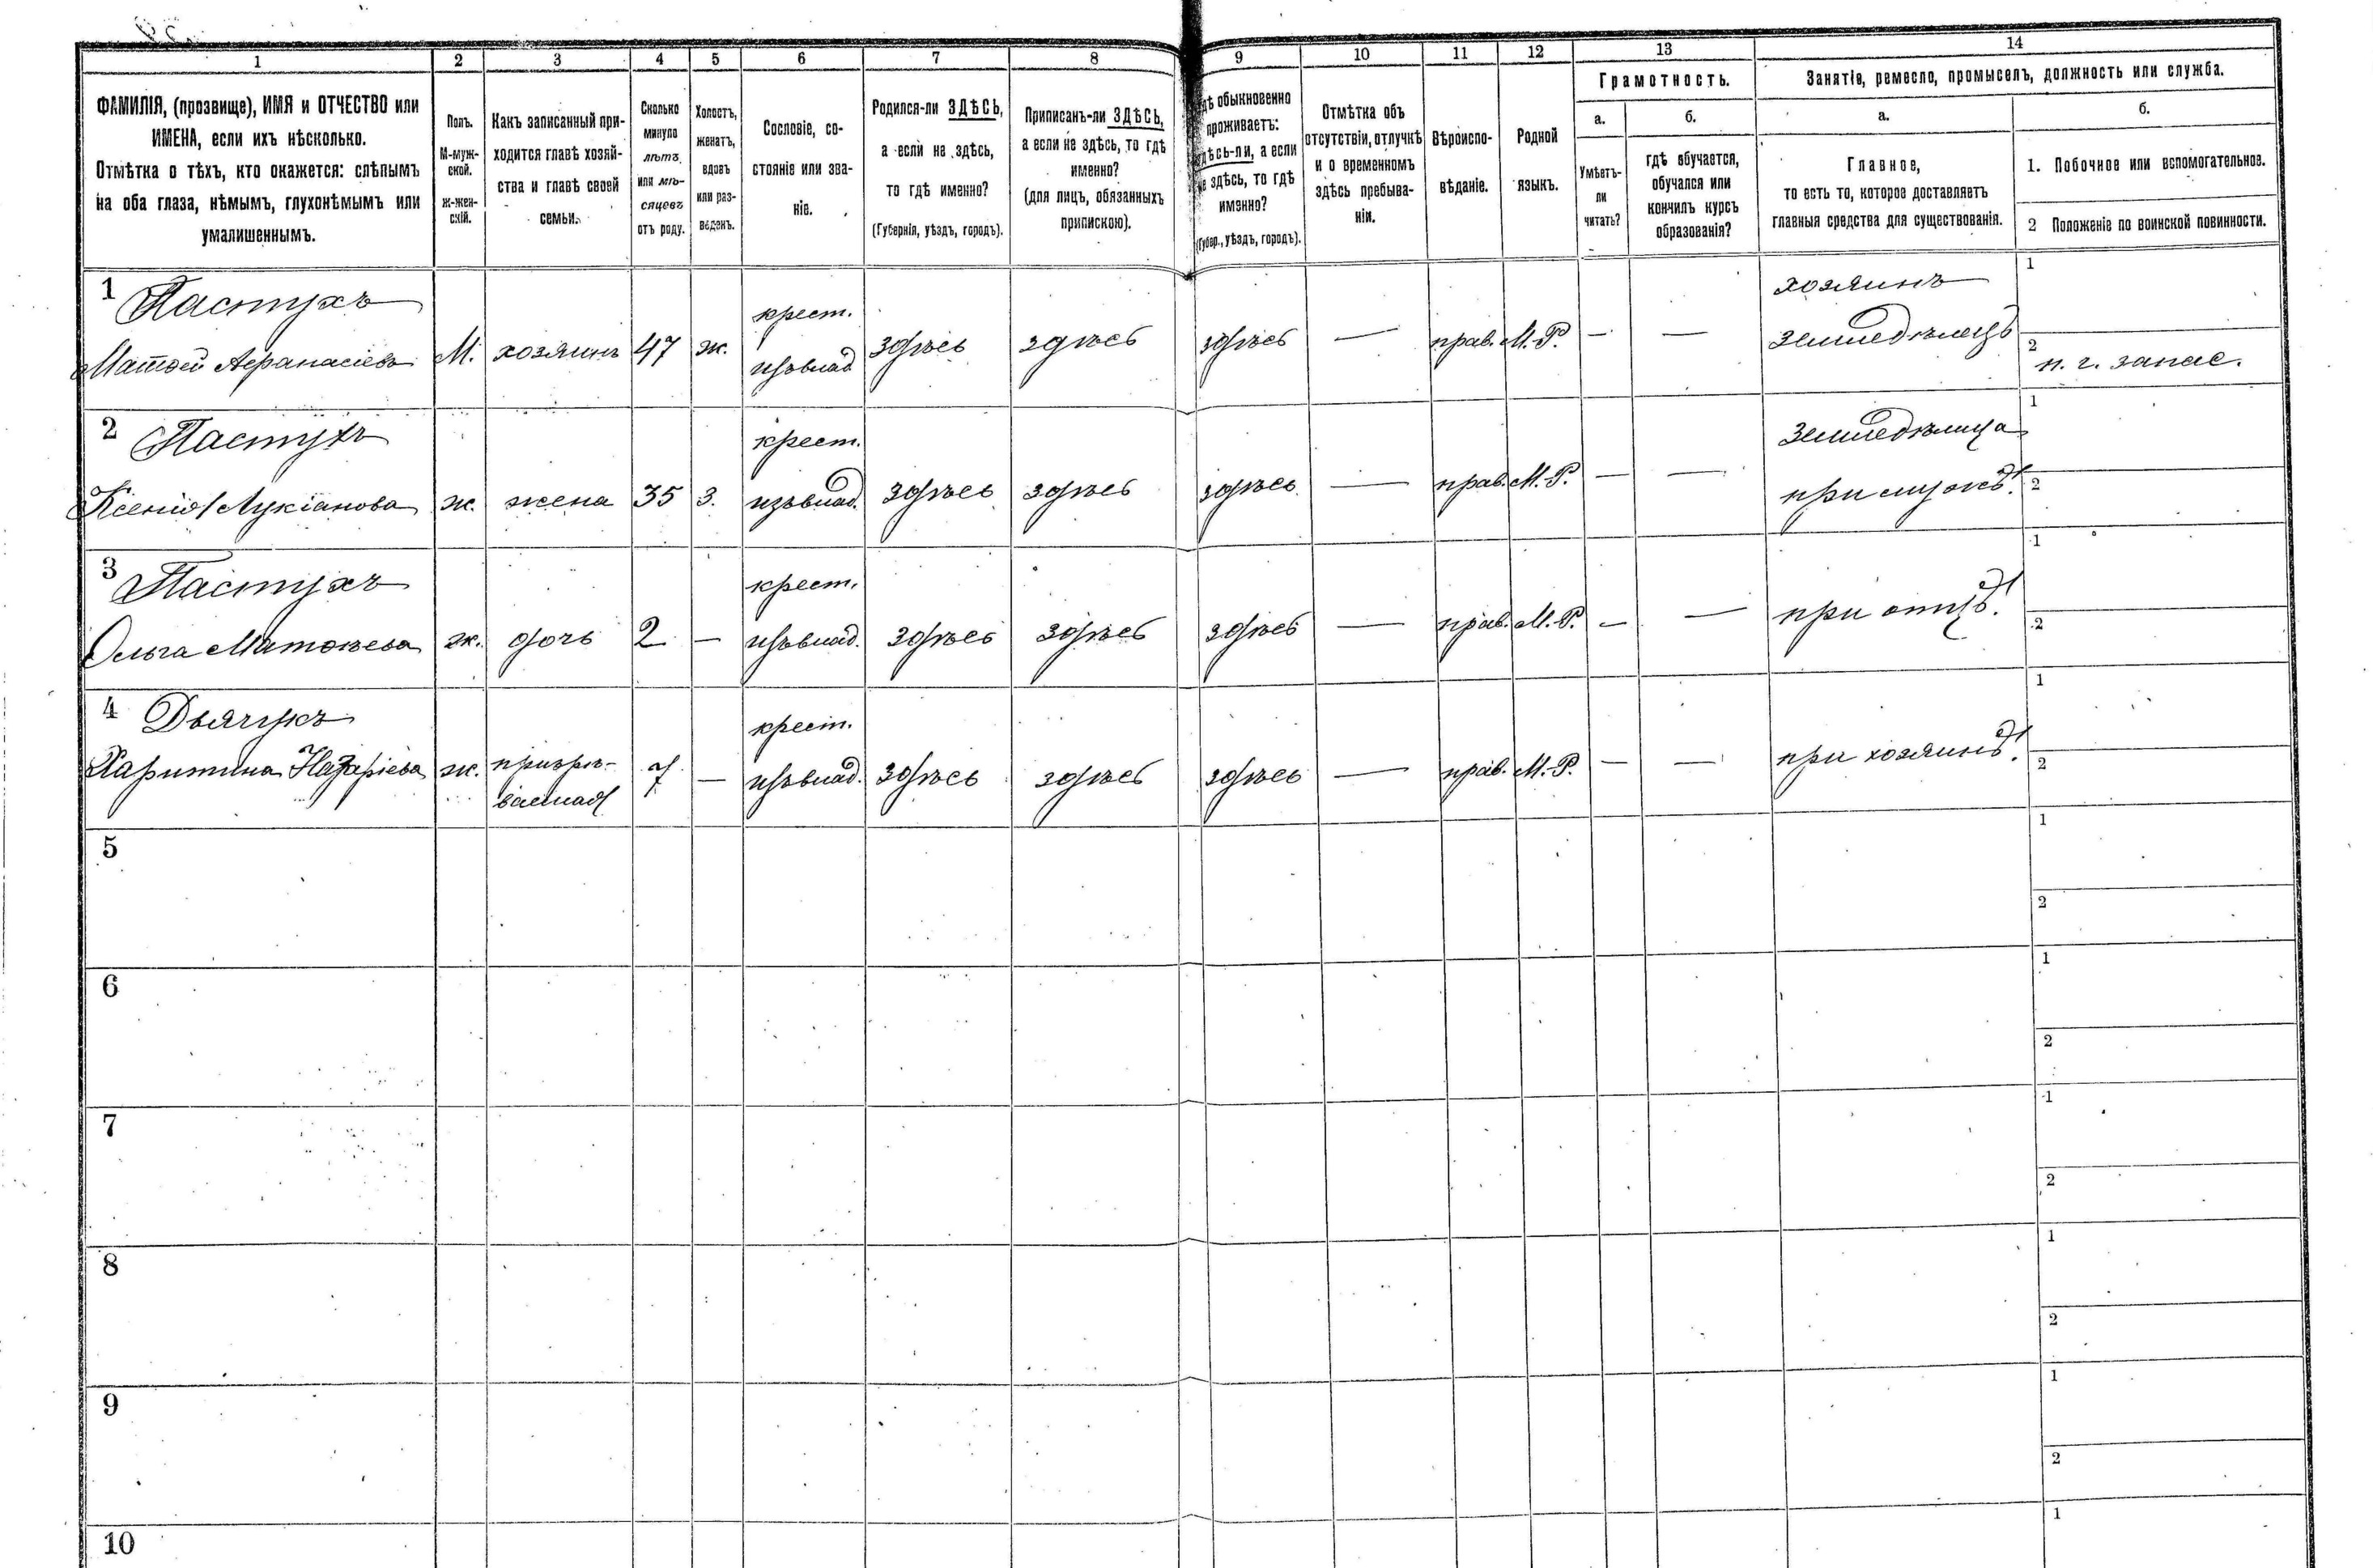 1 2 3 4 5 6 7 8 9 10 11 12 13 14
ФАМИЛІЯ, (прозвище), ИМЯ и ОТЧЕСТВО или
ИМЕНА, если ихъ нѣсколько.
Отмѣтка о тѣхъ, кто окажется: слѣпымъ
на оба глаза, нѣмымъ, глухонѣмымъ или
умалишеннымъ.
Полъ.
М-муж-
ской.
ж-жен-
скій.
Какъ записанный при-
ходится главѣ хозяй-
ства и главѣ своей
семьи.
Сколько
минуло
лѣтъ
или мѣ-
сяцевъ
отъ роду.
Холостъ,
женатъ,
вдовъ
или раз-
веденъ.
Сословіе, со-
стояніе или зва-
ніе.
Родился-ли ЗДѢСЬ,
а если не здѣсь,
то гдѣ именно?
(Губернія, уѣздъ, городъ).
Приписанъ-ли ЗДѢСЬ,
а если не здѣсь, то гдѣ
именно?
(для лицъ, обязанныхъ
припискою).
гдѣ обыкновенно
проживаетъ:
здѣсь-ли, а если
не здѣсь, то гдѣ
именно?
(Губер., уѣздъ, городъ).
Отмѣтка объ
отсутствіи, отлучкѣ
и о временномъ
здѣсь пребыва-
ніи.
Вѣроиспо-
вѣданіе.
Родной
языкъ.
Грамотность.
а.
Умѣетъ-
ли
читать?
б.
гдѣ обучается,
обучался или
кончилъ курсъ
образованія?
Занятіе, ремесло, промыселъ, должность или служба.
а.
Главное,
то есть то, которое доставляетъ
главныя средства для существованія.
б.
1. Побочное или вспомогательное.
2 Положеніе по воинской повинности.
1 Пастухъ крест. хозяинъ 1
Матѳей Афанасіевъ М. хозяинъ 47 ж. здѣсь здѣсь здѣсь — прав. М.Р. — — земледѣлецъ 2
н. г. запас.
2 Пастухъ крест. земледѣлица 1
Ксенія Лукіанова ж. жена 35 З. здѣсь здѣсь здѣсь — прав. М.Р. — — при мужѣ 2
3 Пастухъ крест. 1
Ольга Матѳѣева ж. дочь 2 — здѣсь здѣсь здѣсь — прав. М.Р. — — при отцѣ 2
4 Дьячукъ крест. 1
Харитина Назаріева ж. призрѣ- 7 — здѣсь здѣсь здѣсь — прав. М.Р. — — при хозяинѣ 2
ваемая
5 1
2
6 1
2
7 1
2
8 1
2
9 1
2
10 1